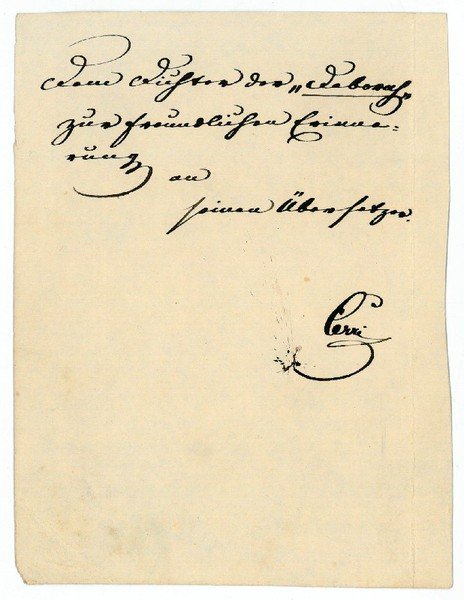 Dem Dichter der „Deborah“
zur freundlichen Erinne-
rung
an
seinen Übersetzer.
Cerri